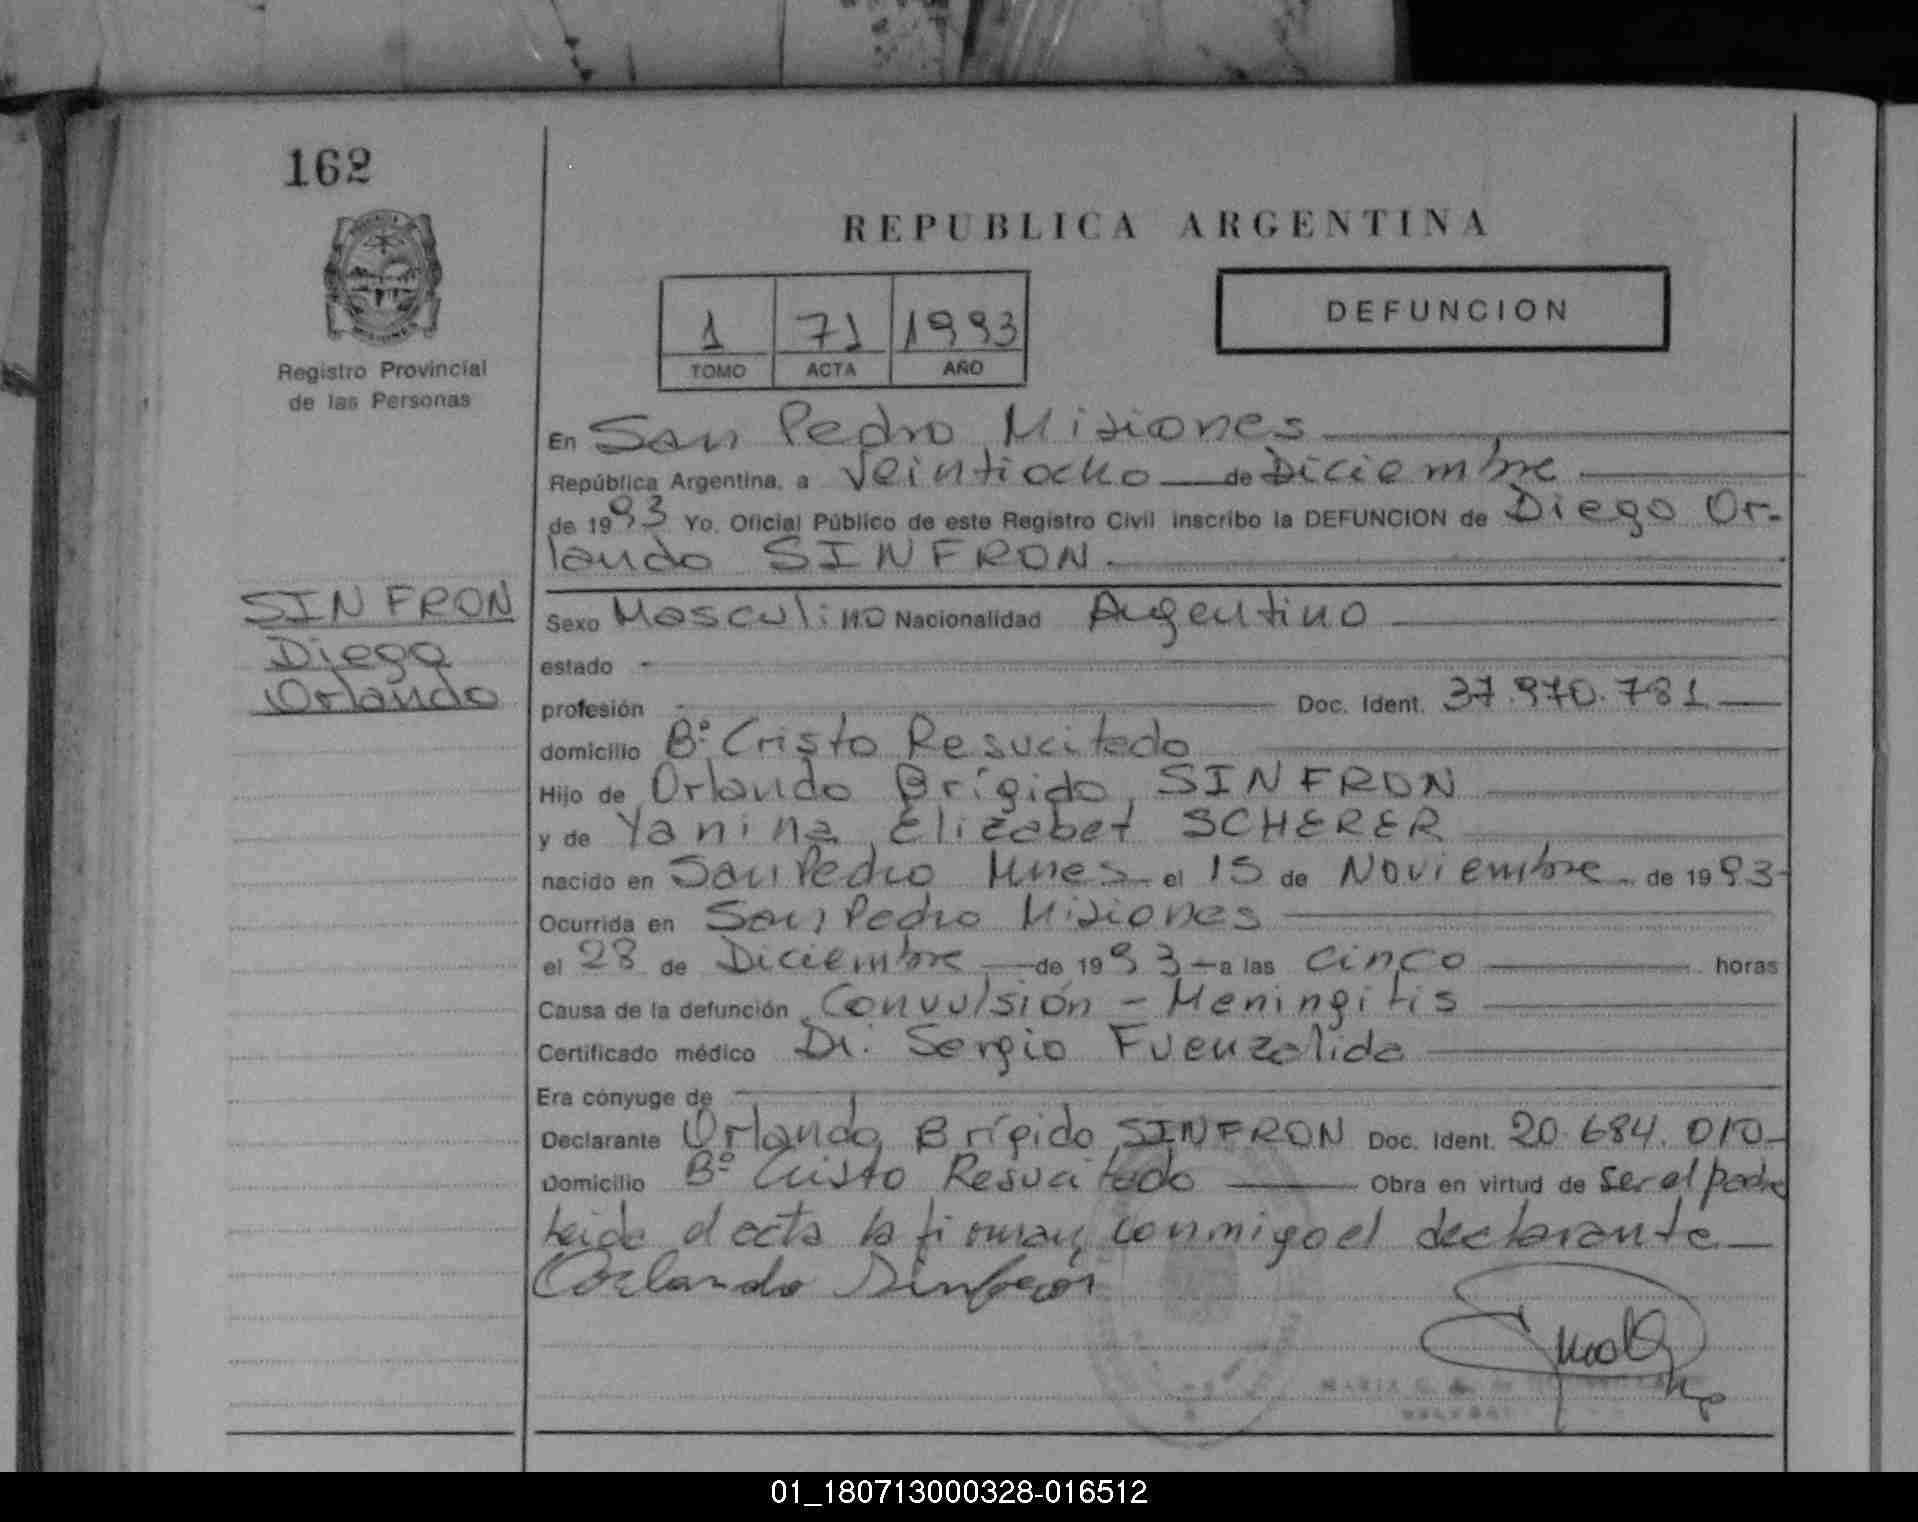 162
REPUBLICA ARGENTINA
DEFUNCION
1 71 1993
TOMO ACTA AÑO
Registro Provincial
de las Personas
En San Pedro Misiones
República Argentina, a Veintiocho de Diciembre
de 1993 Yo. Oficial Público de este Registro Civil inscribo la DEFUNCION de Diego Or-
lando SINFRON
SINFRON
Diego
Orlando
Sexo Masculino Nacionalidad Argentino
estado
profesión Doc. Ident. 37.970.781
domicilio Bº Cristo Resucitado
Hijo de Orlando Brígido SINFRON
y de Yanina Elizabet SCHERER
nacido en San Pedro Mnes el 15 de Noviembre de 1993
Ocurrida en San Pedro Misiones
el 28 de Diciembre de 1993 a las cinco horas
Causa de la defunción Convulsión - Meningitis
Certificado médico Dr. Sergio Fuenzalida
Era cónyuge de
Declarante Orlando Brígido SINFRON Doc. Ident. 20.684.010
Domicilio Bº Cristo Resucitado Obra en virtud de ser el padre
leida el acta la firman conmigo el declarante
Orlando Sinfron
MARIA
01_180713000328-016512